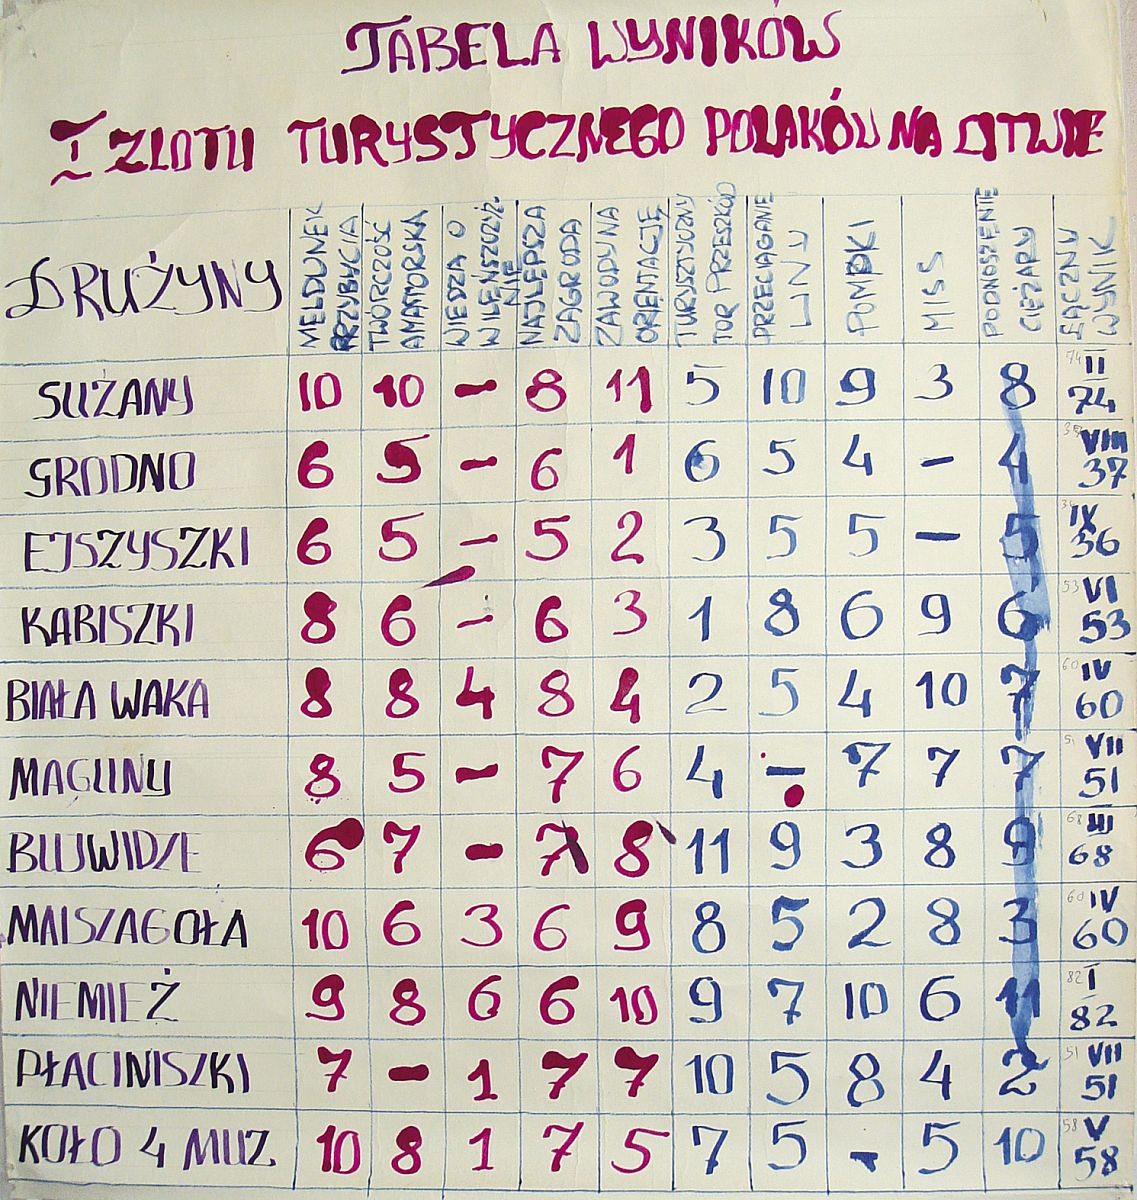 TABELA WYNIKÓW
I ZLOTU TURYSTYCZNEGO POLAKÓW NA LITWIE
DRUŻYNY MELDUNEK PRZYBYCIA TWÓRCZOŚĆ AMATORSKA WIEDZA O WILEŃSZCZYŹNIE NAJLEPSZA ZAGRODA ZAWODY NA ORIENTACJĘ TURYSTYCZNY TOR PRZESZKÓD PRZECIĄGANIE LINY POMPKI MISS PODNOSZENIE CIĘŻARU ŁĄCZNY WYNIK
SUŻANY 10 10 - 8 11 5 10 9 3 8 74 II 74
GRODNO 6 5 - 6 1 6 5 4 - 4 37 VIII 37
EJSZYSZKI 6 5 - 5 2 3 5 5 - 5 IX 36
KABISZKI 8 6 - 6 3 1 8 6 9 6 53 VI 53
BIAŁA WAKA 8 8 4 8 4 2 5 4 10 7 60 IV 60
MAGUNY 8 5 - 7 6 4 - 7 7 7 51 VII 51
BUJWIDZE 6 7 - 7 8 11 9 3 8 9 68 III 68
MAISZAGOŁA 10 6 3 6 9 8 5 2 8 3 60 IV 60
NIEMIEŻ 9 8 6 6 10 9 7 10 6 11 82 I 82
PŁACINISZKI 7 - 1 7 7 10 5 8 4 2 51 VII 51
KOŁO 4 MUZ. 10 8 1 7 5 7 5 - 5 10 58 V 58